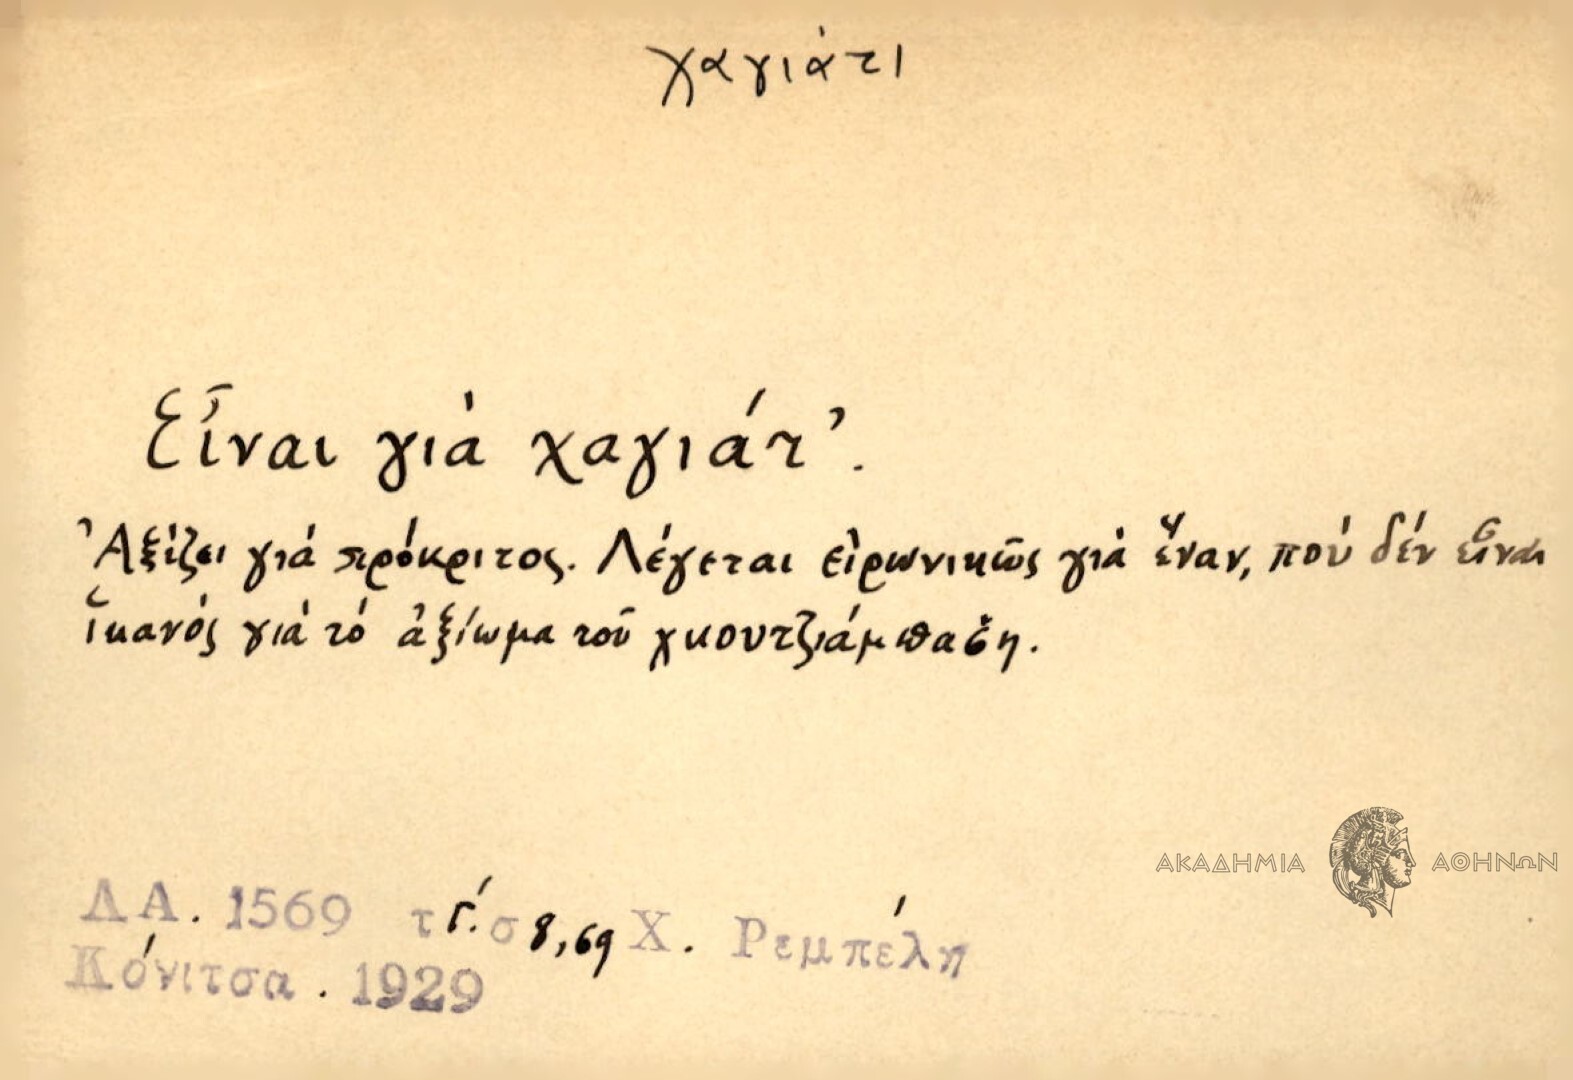 χαγιάτι
Εἶναι γιὰ χαγιάτ᾿.
Ἀξίζει γιά πρόκριτος. Λέγεται εἰρωνικῶς γιὰ ἕναν, πού δέν εἶναι
ἱκανός γιὰ τό ἀξίωμα τοῦ χκουτζιάμπαση.
ΑΚΑΔΗΜΙΑ ΑΘΗΝΩΝ
Λ Α. 1569 τ Γ΄. σ 8,69 Χ. Ρεμπέλη
Κόνιτσα. 1929